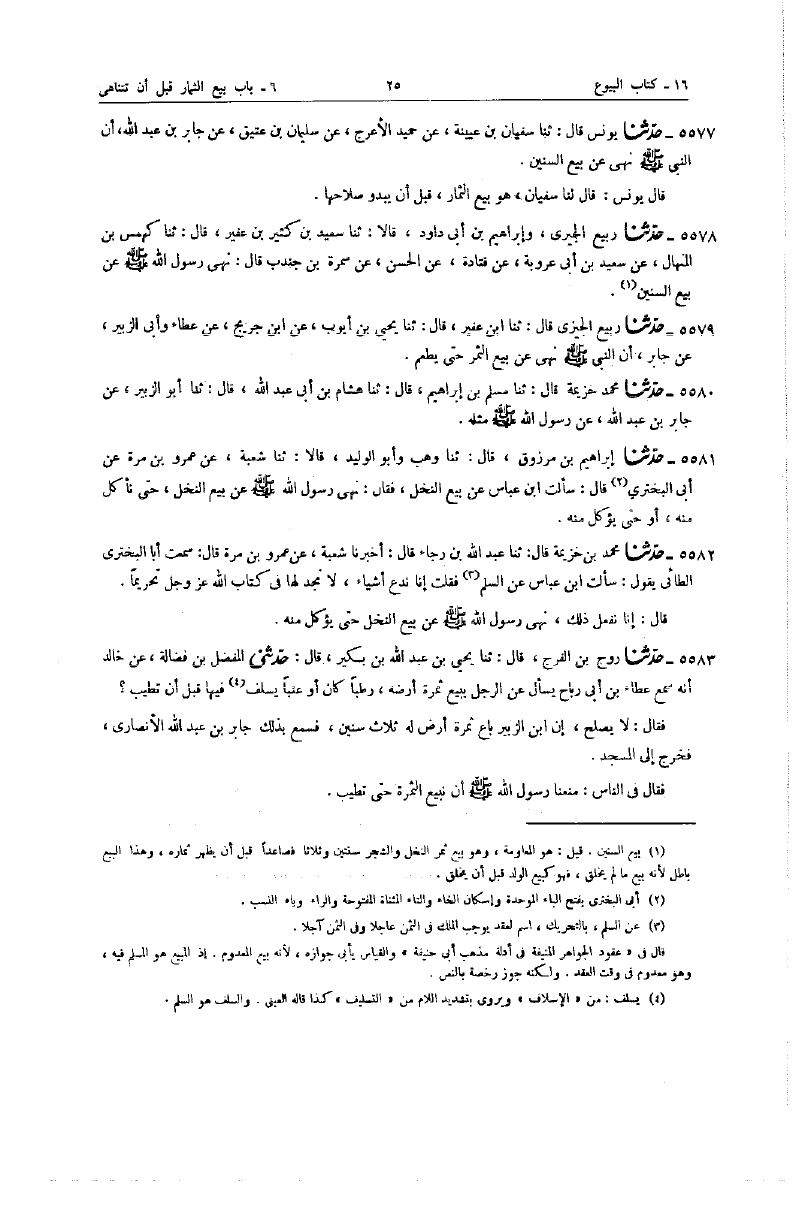 ١٦ ـ كتاب البيوع ٢٥ ٦ ـ باب بيع الثمار قبل أن تتناهى
٥٥٧٧ ـ حدثنا يونس قال : ثنا سفيان بن عيينة ، عن حميد الأعرج ، عن سليمان بن عتيق ، عن جابر بن عبد الله، أن
النبى ﷺ نهى عن بيع السنين .
قال يونس : قال لنا سفيان ، هو بيع الثمار ، قبل أن يبدو صلاحها .
٥٥٧٨ ـ حدثنا ربيع الجيزى ، وإبراهيم بن أبى داود ، قالا : ثنا سعيد بن كثير بن عفير ، قال : ثنا كهمس بن
المنهال ، عن سعيد بن أبى عروبة ، عن قتادة ، عن الحسن ، عن سمرة بن جندب قال : نهى رسول الله ﷺ عن
بيع السنين(١) .
٥٥٧٩ ـ حدثنا ربيع الجيزى قال : ثنا ابن عفير ، قال : ثنا يحيى بن أيوب ، عن ابن جريج ، عن عطاء وأبى الزبير ،
عن جابر ، أن النبى ﷺ نهى عن بيع الثمر حتى يطعم .
٥٥٨٠ ـ حدثنا محمد خزيمة قال : ثنا مسلم بن إبراهيم ، قال : ثنا هشام بن أبى عبد الله ، قال : ثنا أبو الزبير ، عن
جابر بن عبد الله ، عن رسول الله ﷺ مثله .
٥٥٨١ ـ حدثنا إبراهيم بن مرزوق ، قال : ثنا وهب وأبو الوليد ، قالا : ثنا شعبة ، عن عمرو بن مرة عن
أبى البخترى(٢) قال : سألت ابن عباس عن بيع النخل ، فقال : نهى رسول الله ﷺ عن بيع النخل ، حتى نأكل
منه ، أو حتى يؤكل منه .
٥٥٨٢ ـ حدثنا محمد بن خزيمة قال: ثنا عبد الله بن رجاء قال : أخبرنا شعبة ، عن عمرو بن مرة قال: سمعت أبا البخترى
الطائى يقول : سألت ابن عباس عن السلم(٣) فقلت إنا ندع أشياء ، لا نجد لها فى كتاب الله عز وجل تحريماً .
قال : إنا نفعل ذلك ، نهى رسول الله ﷺ عن بيع النخل حتى يؤكل منه .
٥٥٨٣ ـ حدثنا روح بن الفرج ، قال : ثنا يحيى بن عبد الله بن بكير ، قال : حدثنى المفضل بن فضالة ، عن خالد
أنه سمع عطاء بن أبى رباح يسأل عن الرجل يبيع ثمرة أرضه ، رطباً كان أو عنباً يسلف(٤) فيها قبل أن تطيب ؟
فقال : لا يصلح ، إن ابن الزبير باع ثمرة أرض له ثلاث سنين ، فسمع بذلك جابر بن عبد الله الأنصارى ،
فخرج إلى المسجد .
فقال فى الناس : منعنا رسول الله ﷺ أن نبيع الثمرة حتى تطيب .
(١) بيع السنين . قيل : هو المعاومة ، وهو بيع ثمر النخل والشجر سنتين وثلاثا فصاعداً قبل أن يظهر ثماره ، وهذا البيع
باطل لأنه بيع ما لم يخلق ، فهو كبيع الولد قبل أن يخلق .
(٢) أبى البخترى بفتح الباء الموحدة وإسكان الخاء والتاء المثناة المفتوحة والراء وياء النسب .
(٣) عن السلم ، بالتحريك ، اسم لعقد يوجب الملك فى الثمن عاجلا وفى الثمن آجلا .
قال فى « عقود الجواهر المنيفة فى أدلة مذهب أبى حنيفة » والقياس يأبى جوازه ، لأنه بيع المعدوم . إذ المبيع هو المسلم فيه ،
وهو معدوم فى وقت العقد . ولكنه جوز رخصة بالنص .
(٤) يسلف : من « الإسلاف » ويروى بتشديد اللام من « التسليف » كذا قاله العينى . والسلف هو السلم .